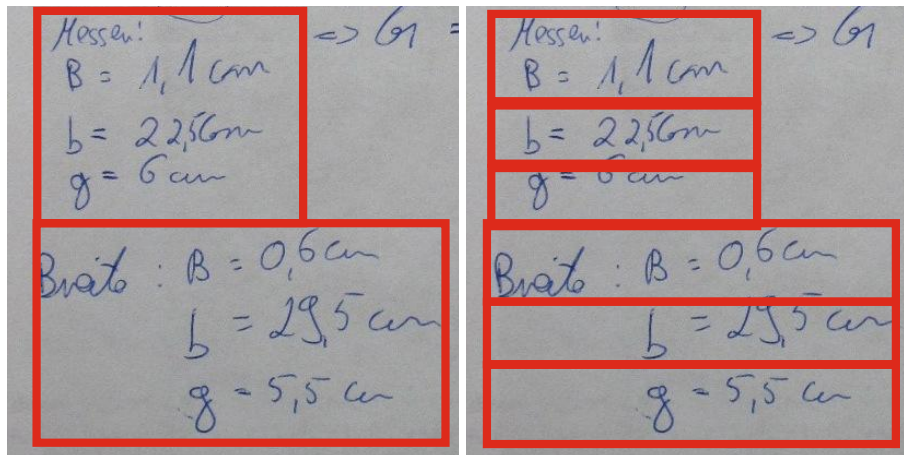 Messen: => G =
B = 1,1 cm
b = 22,5 cm
g = 6 cm
Breite : B = 0,6 cm
b = 29,5 cm
g = 5,5 cm
Messen: => G
B = 1,1 cm
b = 22,5 cm
g = 6 cm
Breite : B = 0,6 cm
b = 29,5 cm
g = 5,5 cm